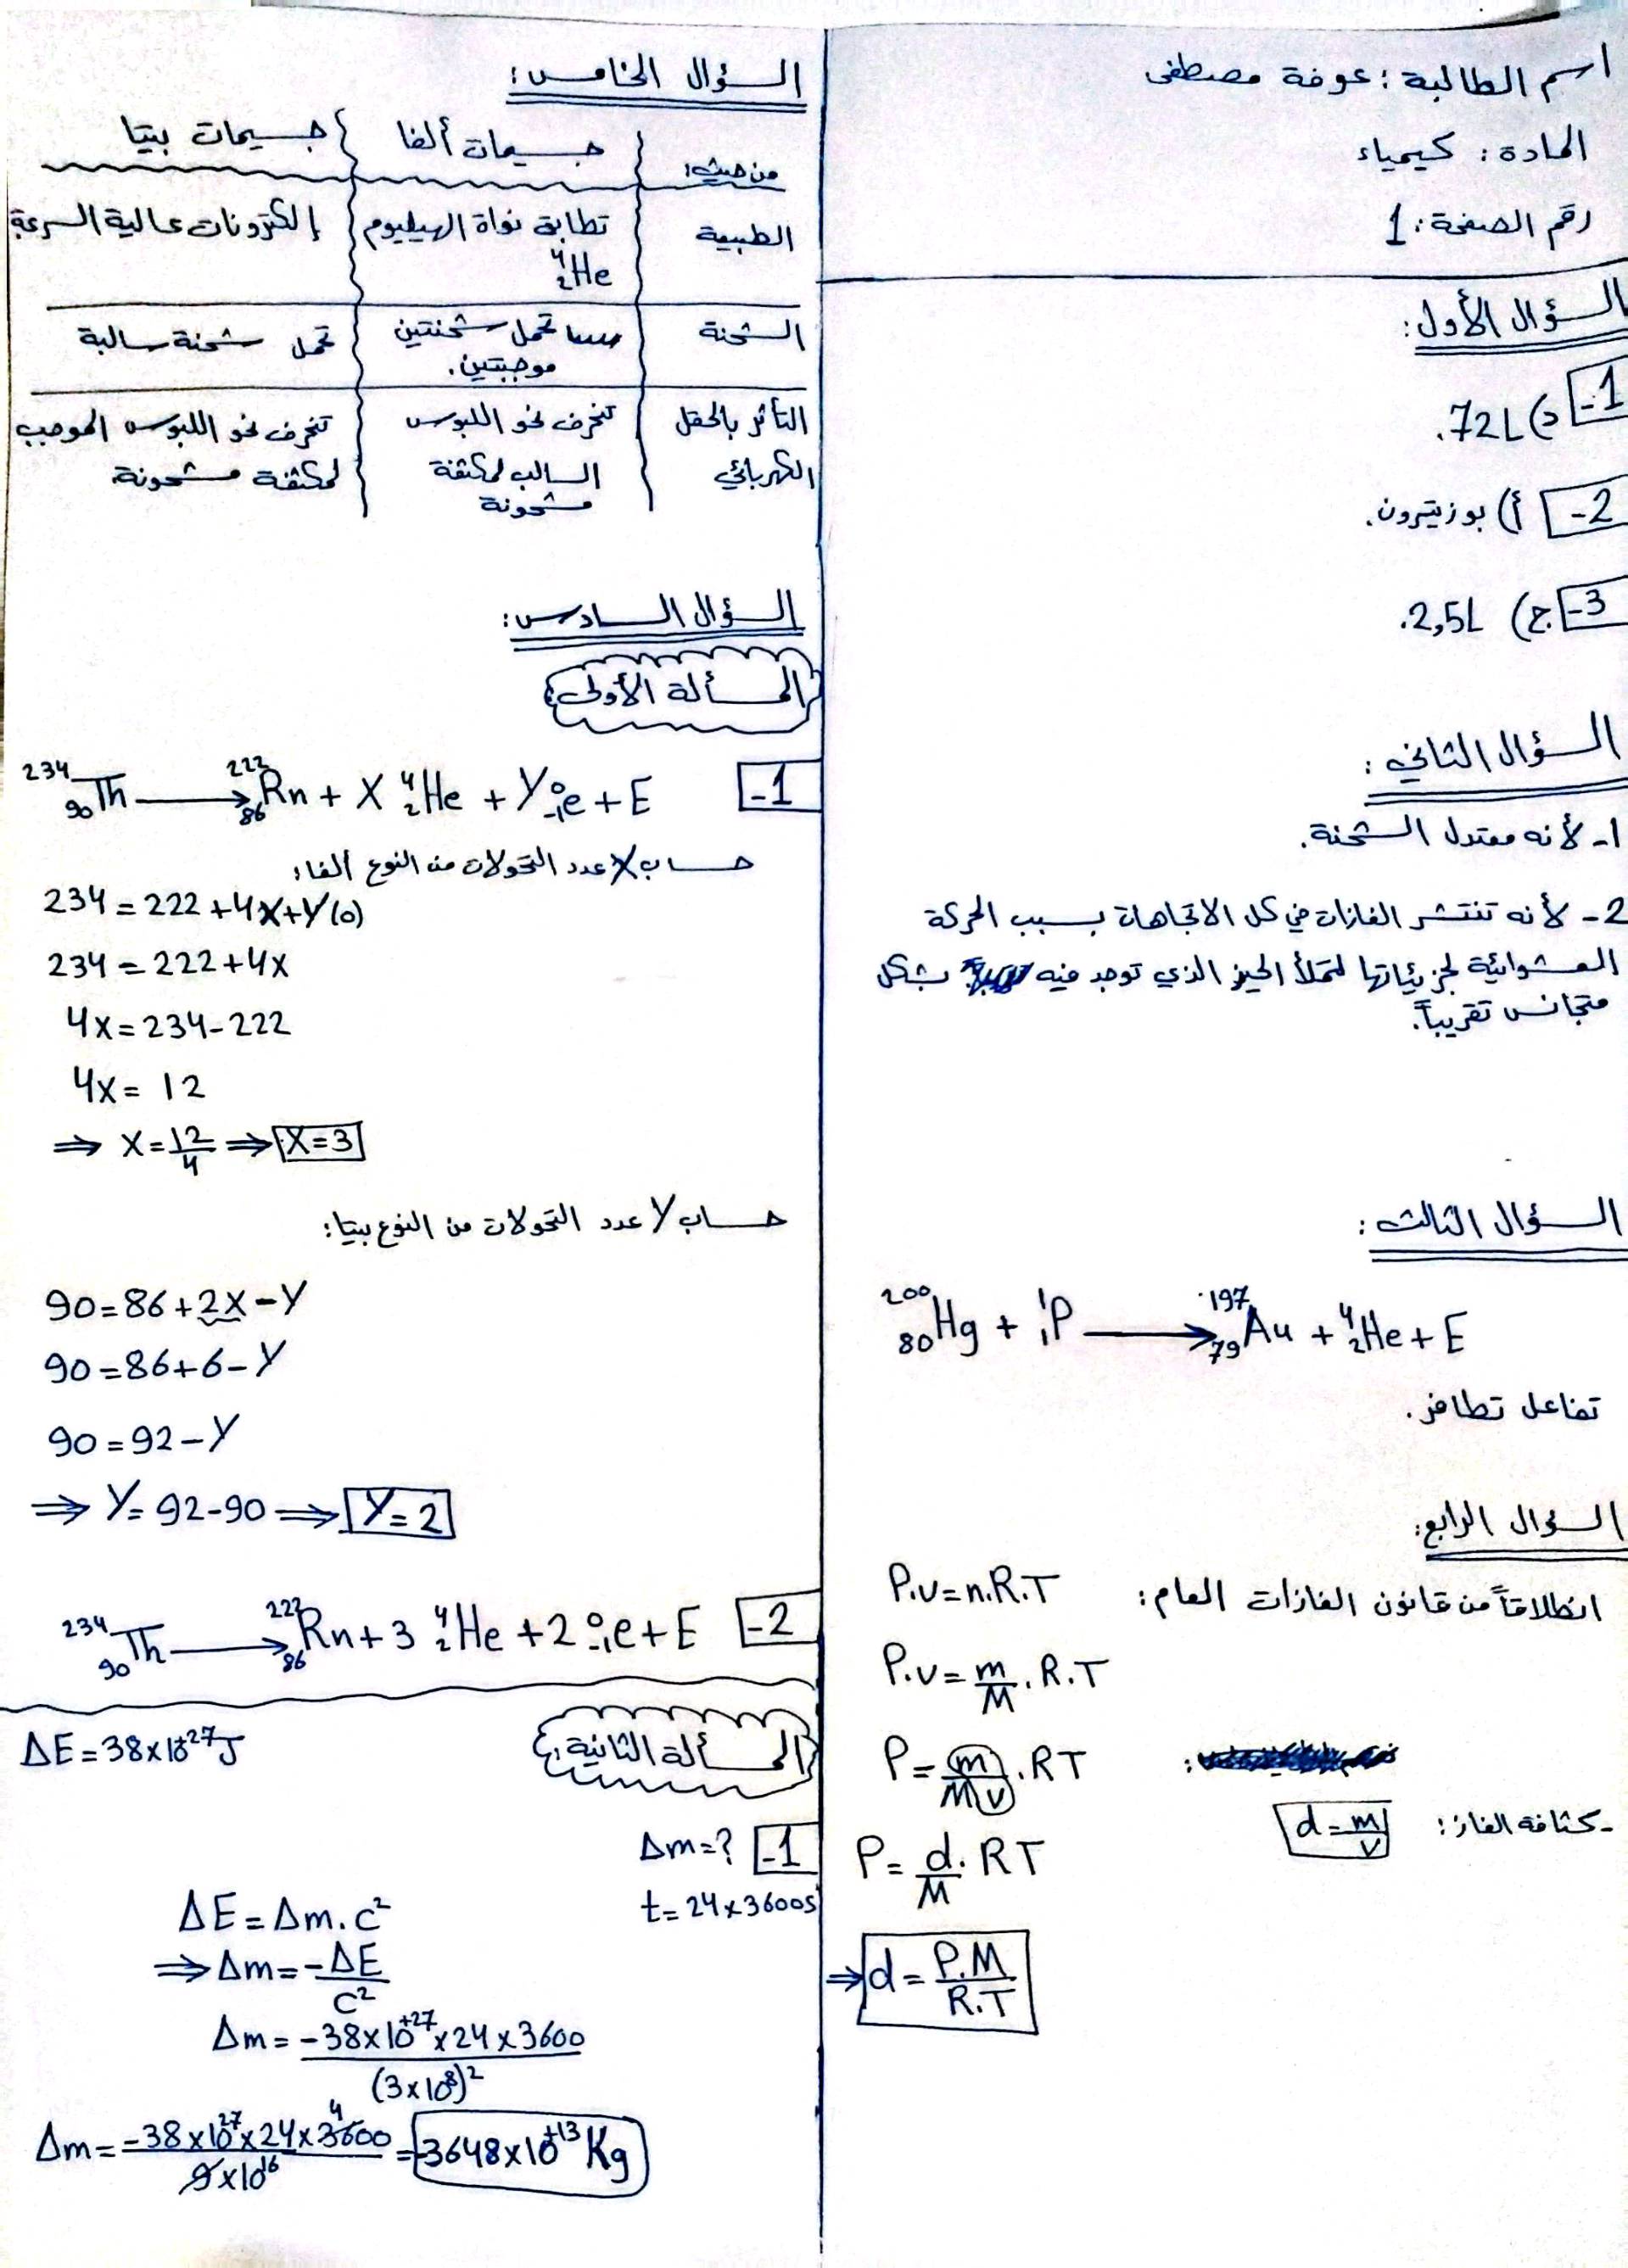 اسم الطالبة : عوفة مصطفى
المادة : كيمياء
رقم الصفحة : 1
السؤال الأول :
1- د) 72L.
2- أ) بوزيترون.
3- ج) 2,5L.
السؤال الثاني :
1- لأنه معتدل الشحنة.
2- لأنه تنتشر الغازات في كل الاتجاهات بسبب الحركة
العشوائية لجزيئاتها لتملأ الحيز الذي توجد فيه بشكل
متجانس تقريباً.
السؤال الثالث :
²⁰⁰₈₀Hg + ¹₁P ⟶ ¹⁹⁷₇₉Au + ⁴₂He + E
تفاعل تطافر.
السؤال الرابع:
انطلاقاً من قانون الغازات العام : P.v = n.R.T
P.v = m/M . R.T
P = m/Mv . RT
- كثافة الغاز : d = m/v
P = d/M . RT
⇒ d = P.M/R.T
السؤال الخامس :
من حيث: جسيمات ألفا جسيمات بيتا
الطبيعة تطابق نواة الهيليوم إلكترونات عالية السرعة
⁴₂He
الشحنة تحمل شحنتين تحمل شحنة سالبة
موجبتين.
التأثر بالحقل تنحرف نحو اللبوس تنحرف نحو اللبوس الموجب
الكهربائي السالب لمكثفة لمكثفة مشحونة
مشحونة
السؤال السادس :
المسألة الأولى :
1- ²³⁴₉₀Th ⟶ ²²²₈₆Rn + X ⁴₂He + Y ⁰₋₁e + E
حساب X عدد التحولات من النوع ألفا :
234 = 222 + 4X + Y(0)
234 = 222 + 4X
4X = 234 - 222
4X = 12
⇒ X = 12/4 ⇒ X = 3
حساب Y عدد التحولات من النوع بيتا :
90 = 86 + 2X - Y
90 = 86 + 6 - Y
90 = 92 - Y
⇒ Y = 92 - 90 ⇒ Y = 2
2- ²³⁴₉₀Th ⟶ ²²²₈₆Rn + 3 ⁴₂He + 2 ⁰₋₁e + E
المسألة الثانية :
ΔE = 38×10⁺²⁷J
1- Δm = ?
t = 24×3600s
ΔE = Δm.c²
⇒ Δm = -ΔE/c²
Δm = -38×10⁺²⁷×24×3600/(3×10⁸)²
Δm = -38×10²⁷×24×3600 4/9×10¹⁶ = -3648×10⁺¹³ Kg